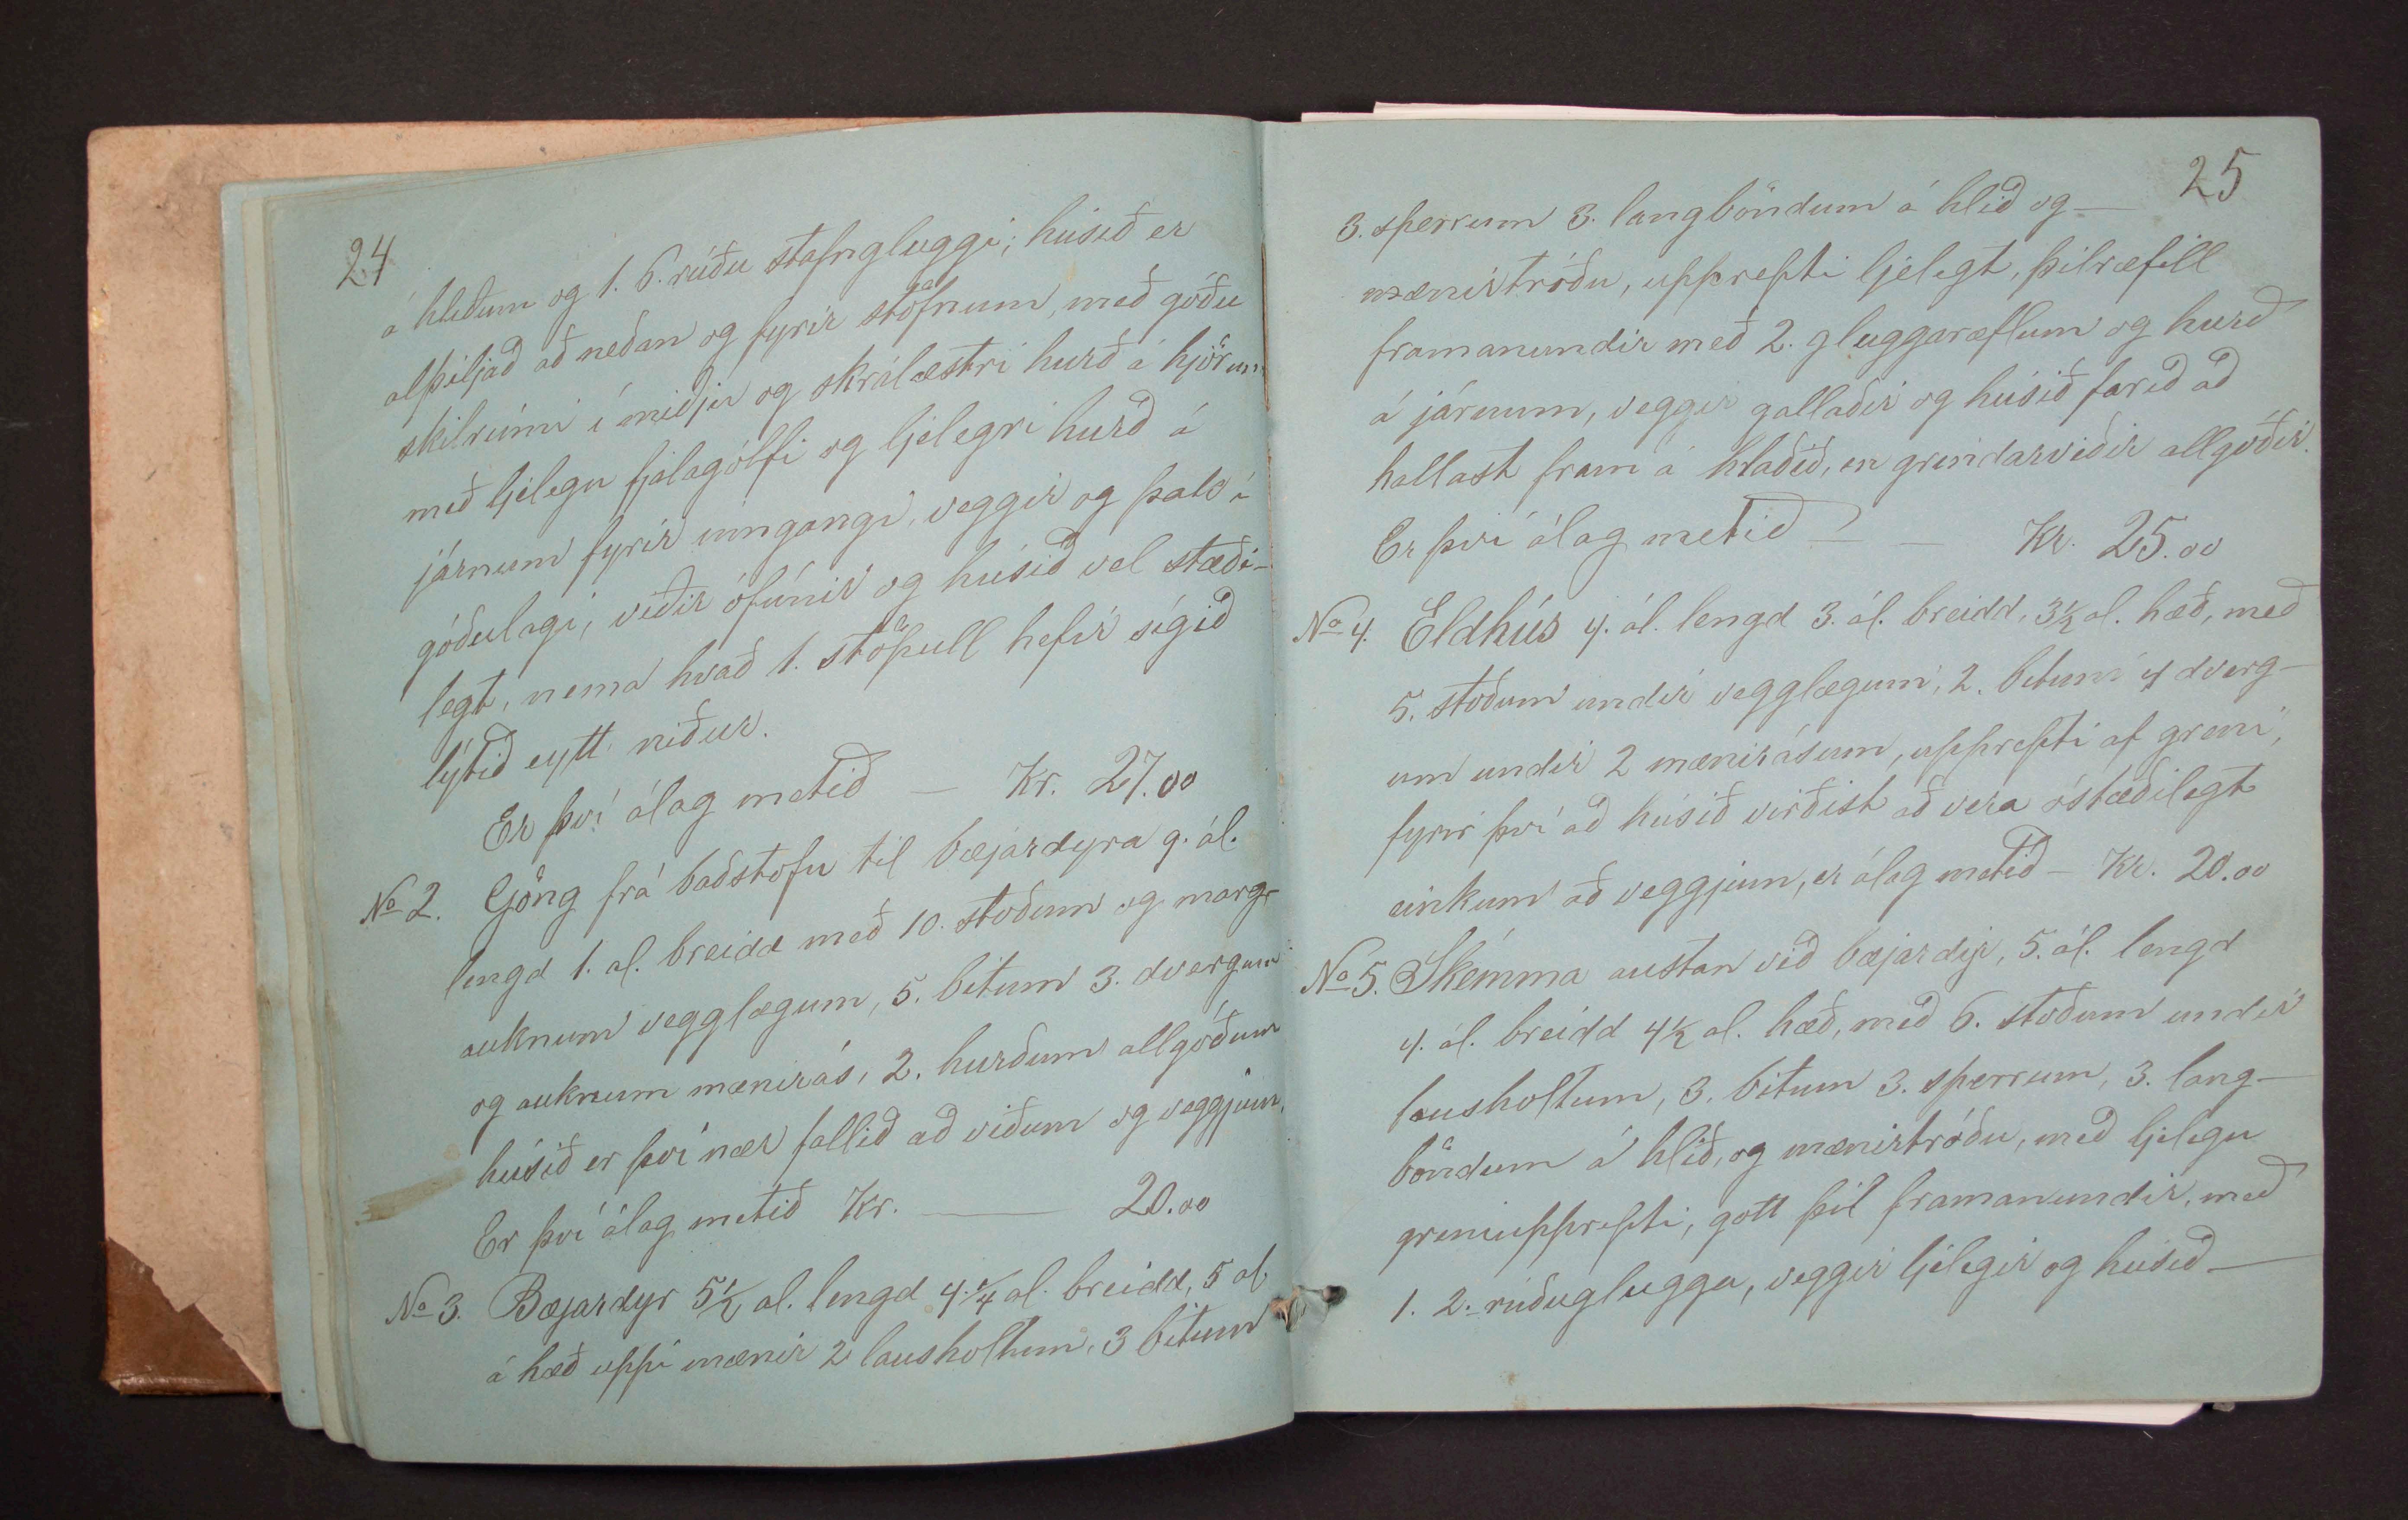 24
á hliðum og 1. 6. rúðu stafngluggi; húsið er
alþiljað að neðan og fyrir stöfnum, með góðu
skilrúmi í miðju og skrálæstri hurð á hjörum
með ljelegu fjalagólfi og ljelegri hurð á
járnum fyrir inngangi, veggir og þak í
góðulagi, viðir ófúnir og húsið vel stæði-
legt, nema hvað 1. stöpull hefir sígið
lýtið eytt niður.
Er því álag metið — Kr. 27.00
No 2. Göng frá baðstofu til bæjardyra 9. ál.
lengd 1. al. breidd með 10. stoðum og marg-
auknum vegglægum, 5. bitum 3. dvergum
og auknum mænirás, 2. hurðum allgóðum
húsið er því nær fallið að viðum og veggjum,
Er því álag metið Kr. — 20.00
No 3. Bæjardyr 5½ al. lengd 4¼ al. breidd, 5 al.
á hæð uppí mænir 2 lausholtum, 3 bitum
25
3. sperrum 3. langböndum á hlið og —
mænirtróðu, upprepti ljelegt, þilræfill
framanundir með 2. gluggaræflum og hurð
á járnum, veggir gallaðir og húsið farið að
hallast fram á hlaðið, en grindarviðir allgóðir.
Er því álag metið — — Kr. 25.00
No 4. Eldhús 4. ál. lengd 3. ál. breidd, 3½ al. hæð, með
5. stoðum undir vegglægum, 2. bitum 4 dverg-
um undir 2 mænirásum, upprepti af greni,
fyrir því að húsið virðist að vera óstæðilegt
einkum að veggjum, er álag metið — Kr. 20.00
No 5. Skemma austan við bæjardyr, 5. ál. lengd
4. ál. breidd 4½ al. hæð, með 6. stoðum undir
lausholtum, 3. bitum 3. sperrum, 3. lang-
böndum á hlið, og mænirtróðu, með ljelegu
greniupprepti, gott þil framanundir, með
1. 2. rúðuglugga, veggir ljelegir og húsið —